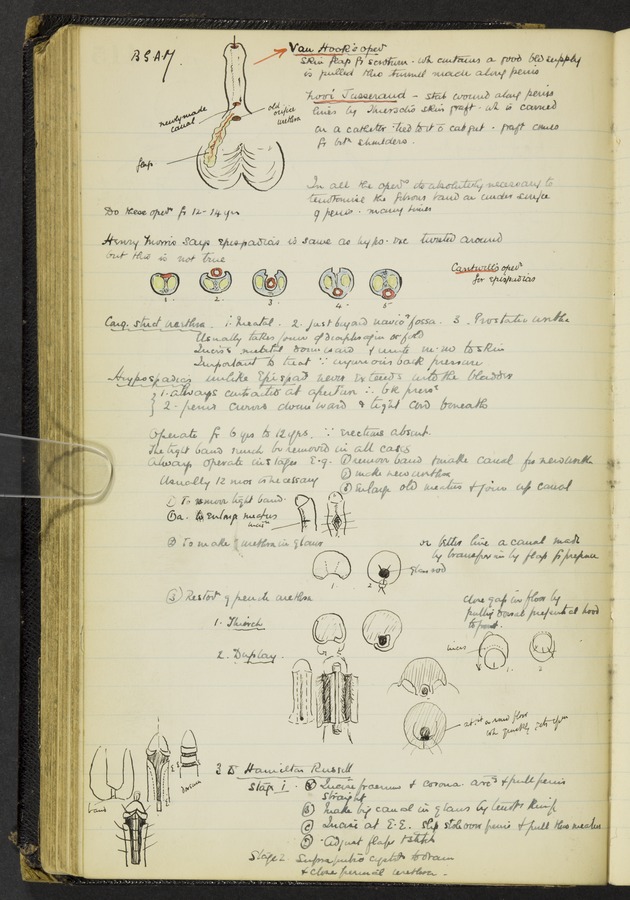 B.S.A.M.
Van Hook's operⁿ
Skin flap fr scrotum · wh contains a good bld supply
is pulled thro tunnel made along penis
newly made
canal
old orifice
urethra
flap
Nové Josserand – stab wound along penis
lined by Thiersch's skin graft · wh is carried
on a catheter tied to it c̄ catgut · graft comes
fr
shoulders.
In all the operⁿˢ its absolutely necessary to
the fibrous band on under surface
of penis · many times
Do these operⁿˢ fr 12–14 yrs
Henry Morris says Epispadias is same as hypo · but twisted around
but this is not true
1. 2. 3. 4. 5.
Cantwell's operⁿ
for epispadias
Cong. strict urethra. 1. Meatal. 2. just beyond navicʳ fossa. 3. Prostatic urethra
Usually takes form of diaphragm or fold
Incise meatal downward & unite m.m to skin
Important to treat ∵ injurious back pressure
Hypospadias unlike Epispad never extends into the bladder
1. always contracted at aperture ∴ bk pressʳ
2. penis curves downward & tight cord beneath
Operate fr 6 yrs to 12 yrs. ∵ erections absent.
The tight band must be removed in all cases
Always operate in stages E.g. ① remove band & make canal for new urethra
② make new urethra
Usually 12 mos is necessary
③ Enlarge old meatus & join up canal
① To remove tight band.
①a. to enlarge meatus
② To make urethra in glans
or better line a canal made
by transfixion by flap fr prepuce
1 2
glass rod
③ Restorⁿ of penile urethra
close gap in floor by
pulling dorsal preputial hood
to front.
1. Thiersch
2. Duplay.
1. 2
wh quickly
3 Hamilton Russell
Stage 1. Ⓐ Incise fraenum & corona and pull penis
straight
Ⓑ Make big canal in glans by tenot. knife
Ⓒ Incise at E.E. Slip stole over penis & pull thro meatus
Ⓓ Adjust flaps & stitch
Stage 2 Suprapubic cystot. to drain
& close perineal urethra.